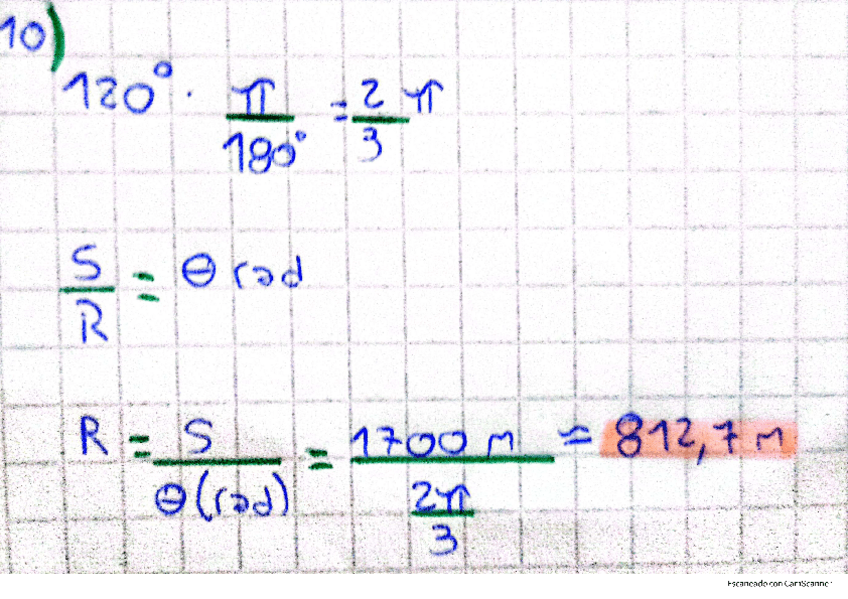 10)
120° · π/180° = 2/3 π
S/R = θ rad
R = S/θ(rad) = 1700 m/(2π/3) ≃ 812,7 m
Escaneado con CamScanner